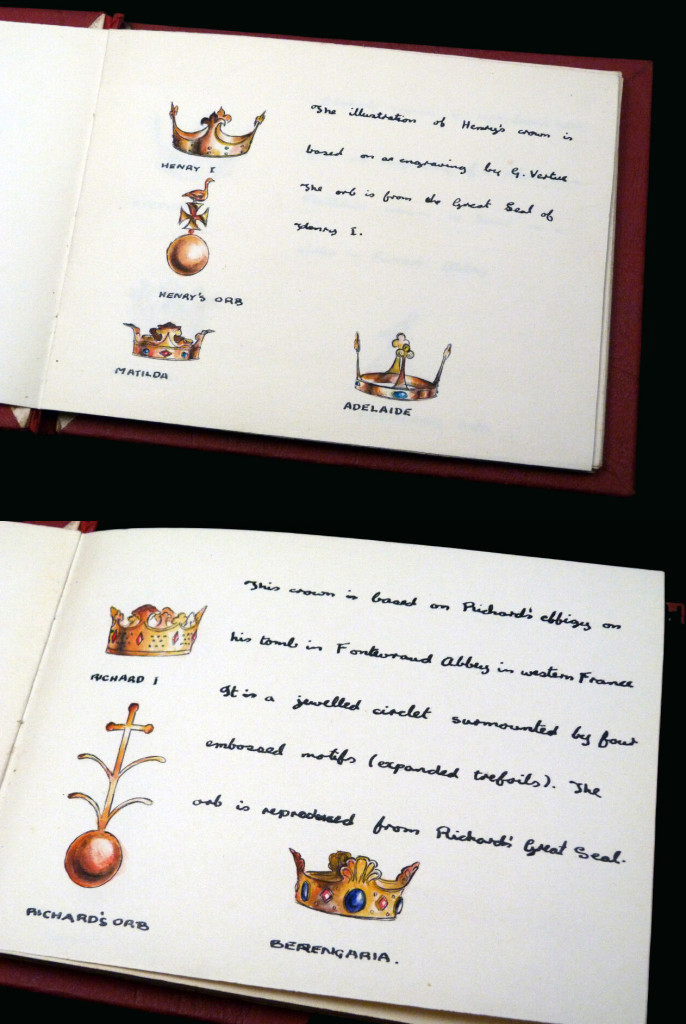 The illustration of Henry's crown is
based on an engraving by G. Vertue
The orb is from the Great Seal of
Henry I.
HENRY I
HENRY'S ORB
MATILDA
ADELAIDE
This crown is based on Richard's effigy on
his tomb in Fontevraud Abbey in western France
It is a jewelled circlet surmounted by four
embossed motifs (expanded trefoils). The
orb is reproduced from Richard's Great Seal.
RICHARD I
RICHARD'S ORB
BERENGARIA.